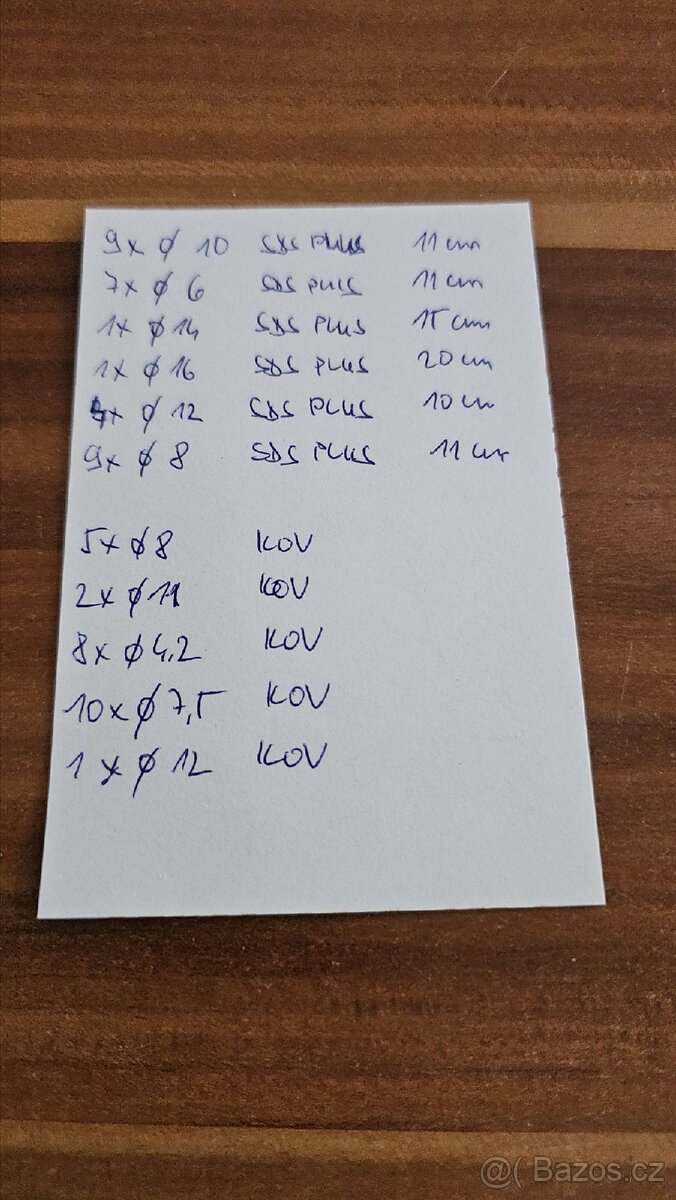 9x ø 10 SDS PLUS 11 cm
7x ø 6 SDS PLUS 11 cm
1x ø 14 SDS PLUS 15 cm
1x ø 16 SDS PLUS 20 cm
4x ø 12 SDS PLUS 10 cm
9x ø 8 SDS PLUS 11 cm
5x ø 8 KOV
2x ø 11 KOV
8x ø 4,2 KOV
10x ø 7,5 KOV
1x ø 12 KOV
@( Bazos.cz